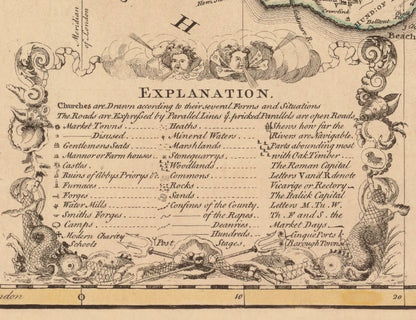 Meridian of London
H
HUND: OF
Beach
EXPLANATION.
Churches are Drawn according to their several Forms and Situations
The Roads are Expressed by Parallel Lines & prick'd Parallels are open Roads
Market Towns
Disused
Gentlemens Seats
Mannor or Farm houses
Castles
Ruins of Abbys Priorys &c
Furnaces
Forges
Water Mills
Smiths Forges
Camps
Modern Charity
Schools
Heaths
Mineral Waters
Marshlands
Stonequarrys
Woodlands
Commons
Rocks
Sands
Confines of the County
of the Ropes
Deanries
Hundreds
Post Stages
Shews how far the
Rivers are Navigable
Parts abounding most
with Oak Timber
The Roman Capital
Letters V and R denote
Vicarige or Rectory
The Italick Capital
Letters M. Tu. W.
Th. F and S. the
Market Days
Cinque Ports &
Borough Towns
London 0 10 20